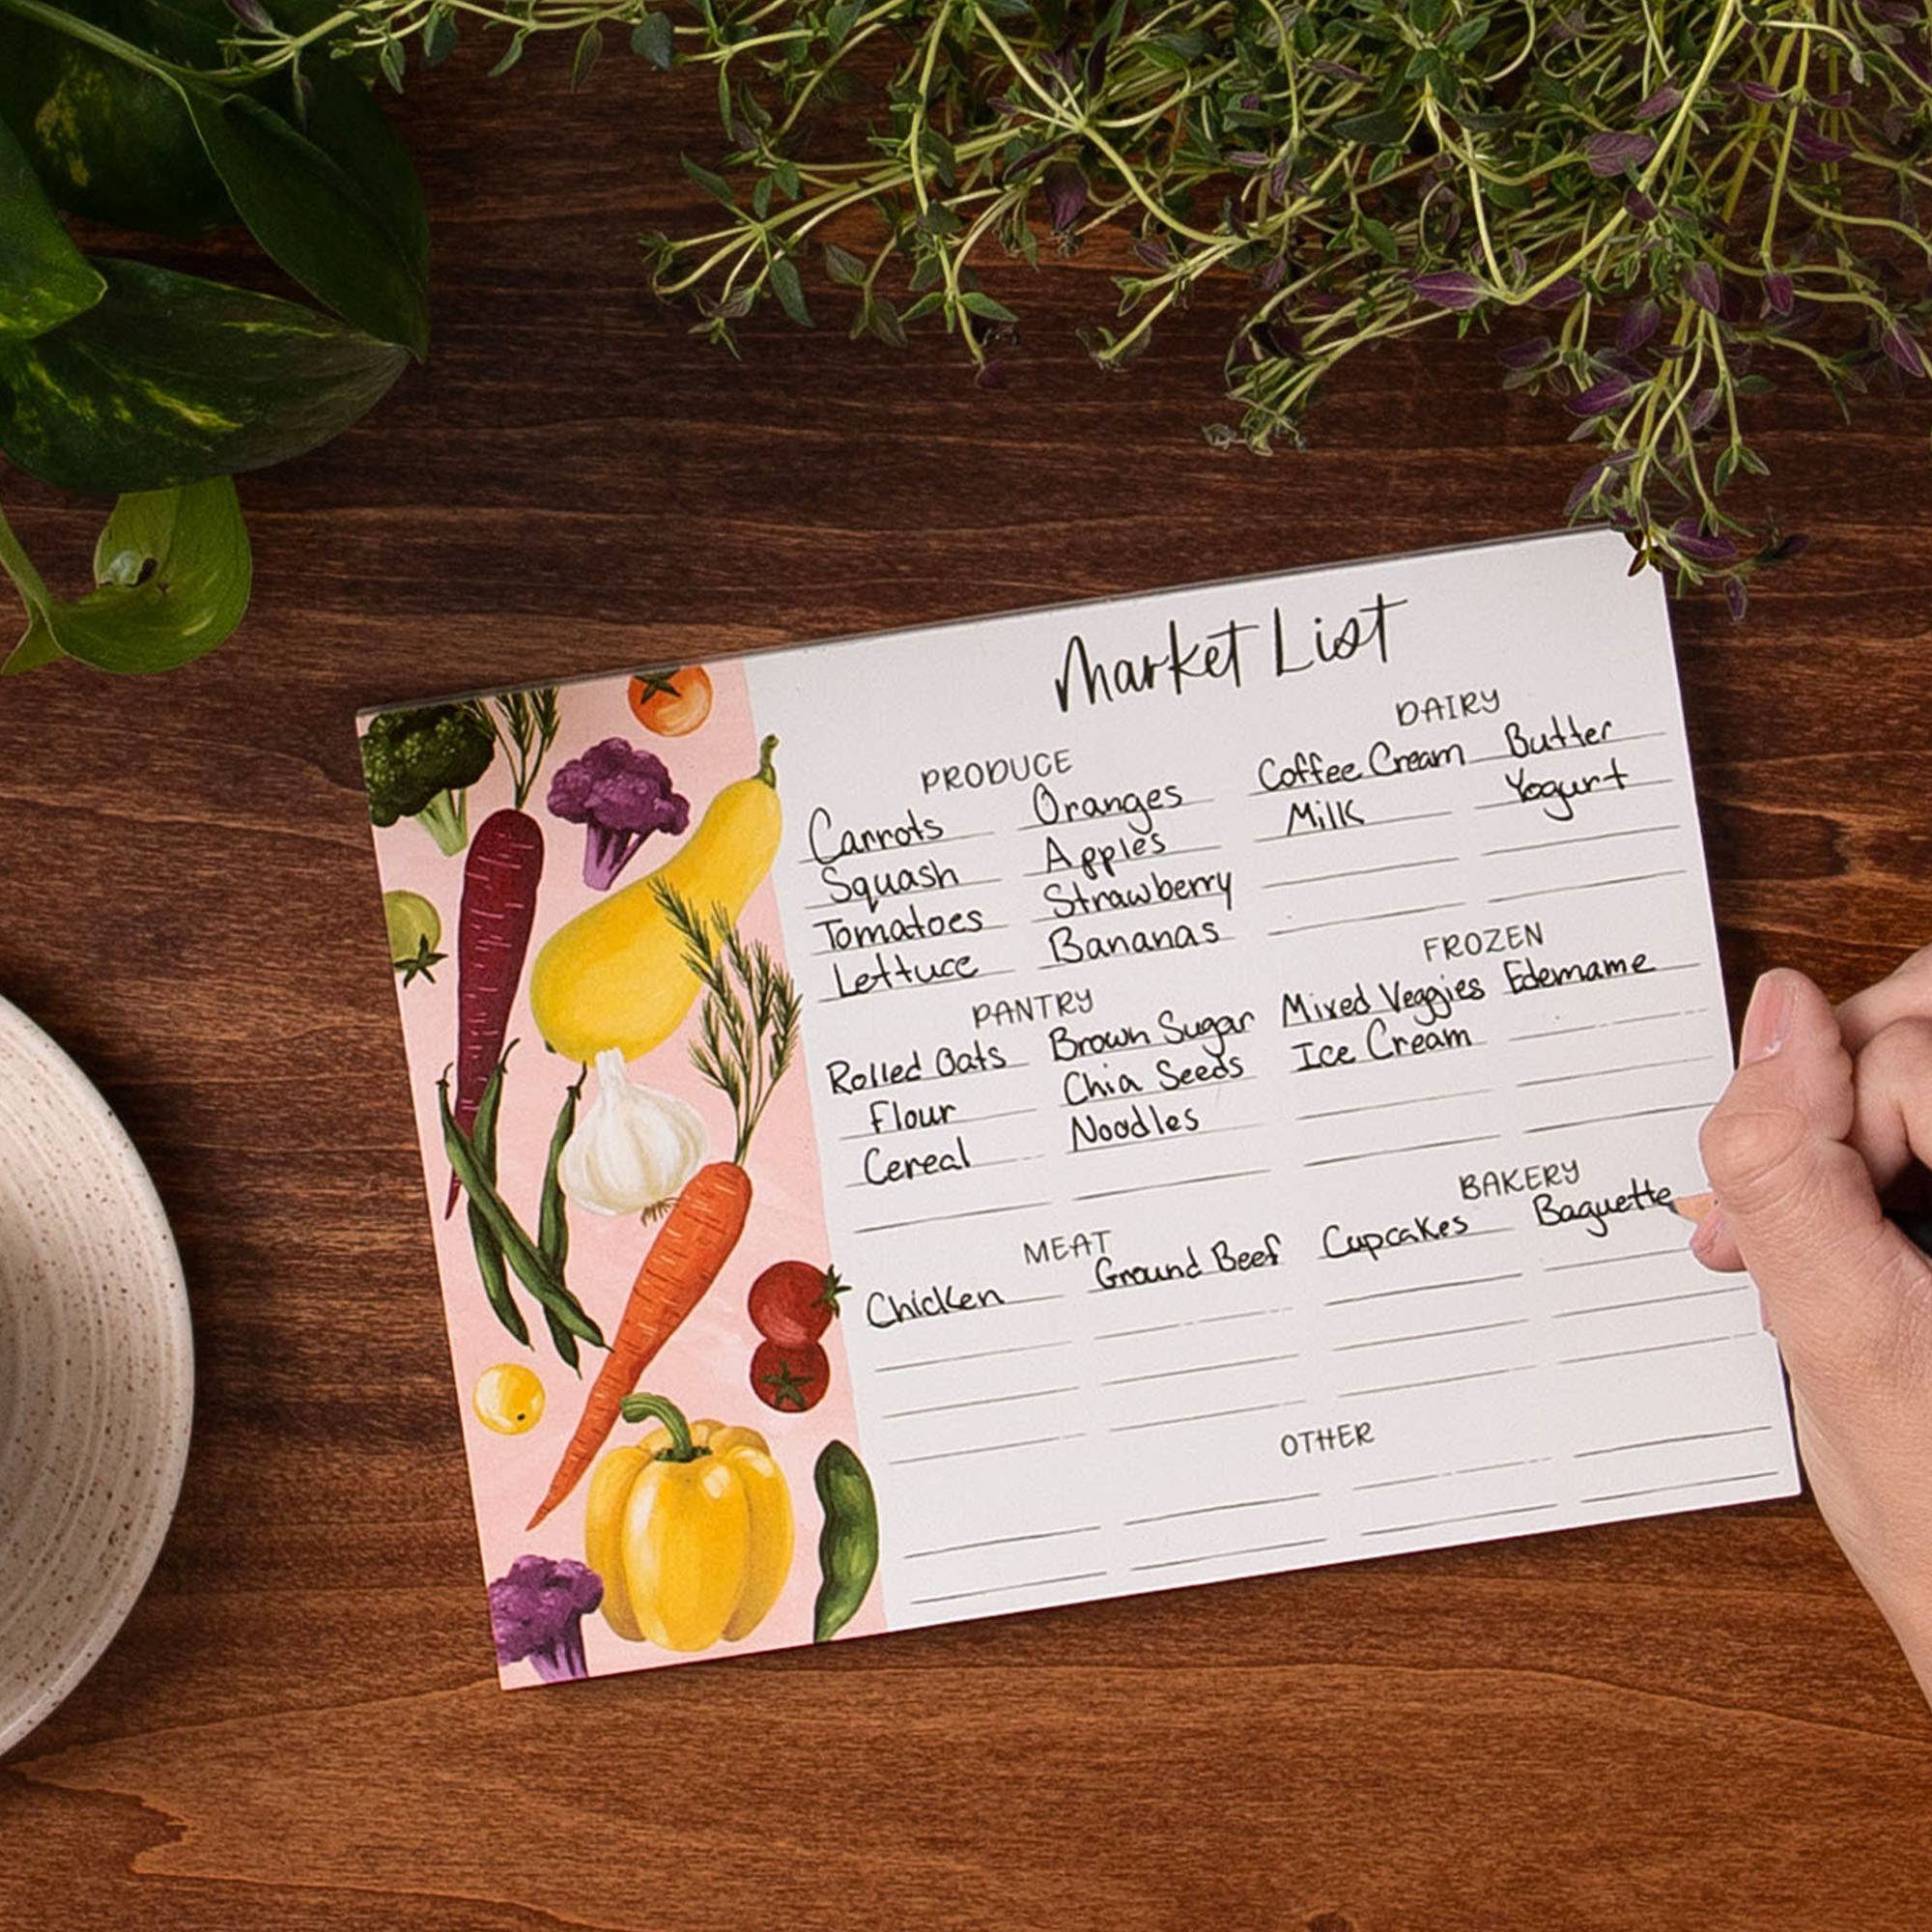 Market List
PRODUCE
Carrots Oranges
Squash Apples
Tomatoes Strawberry
Lettuce Bananas
PANTRY
Rolled Oats Brown Sugar
Flour Chia Seeds
Cereal Noodles
MEAT
Chicken Ground Beef
DAIRY
Coffee Cream Butter
Milk Yogurt
FROZEN
Mixed Veggies Edemame
Ice Cream
BAKERY
Cupcakes Baguette
OTHER